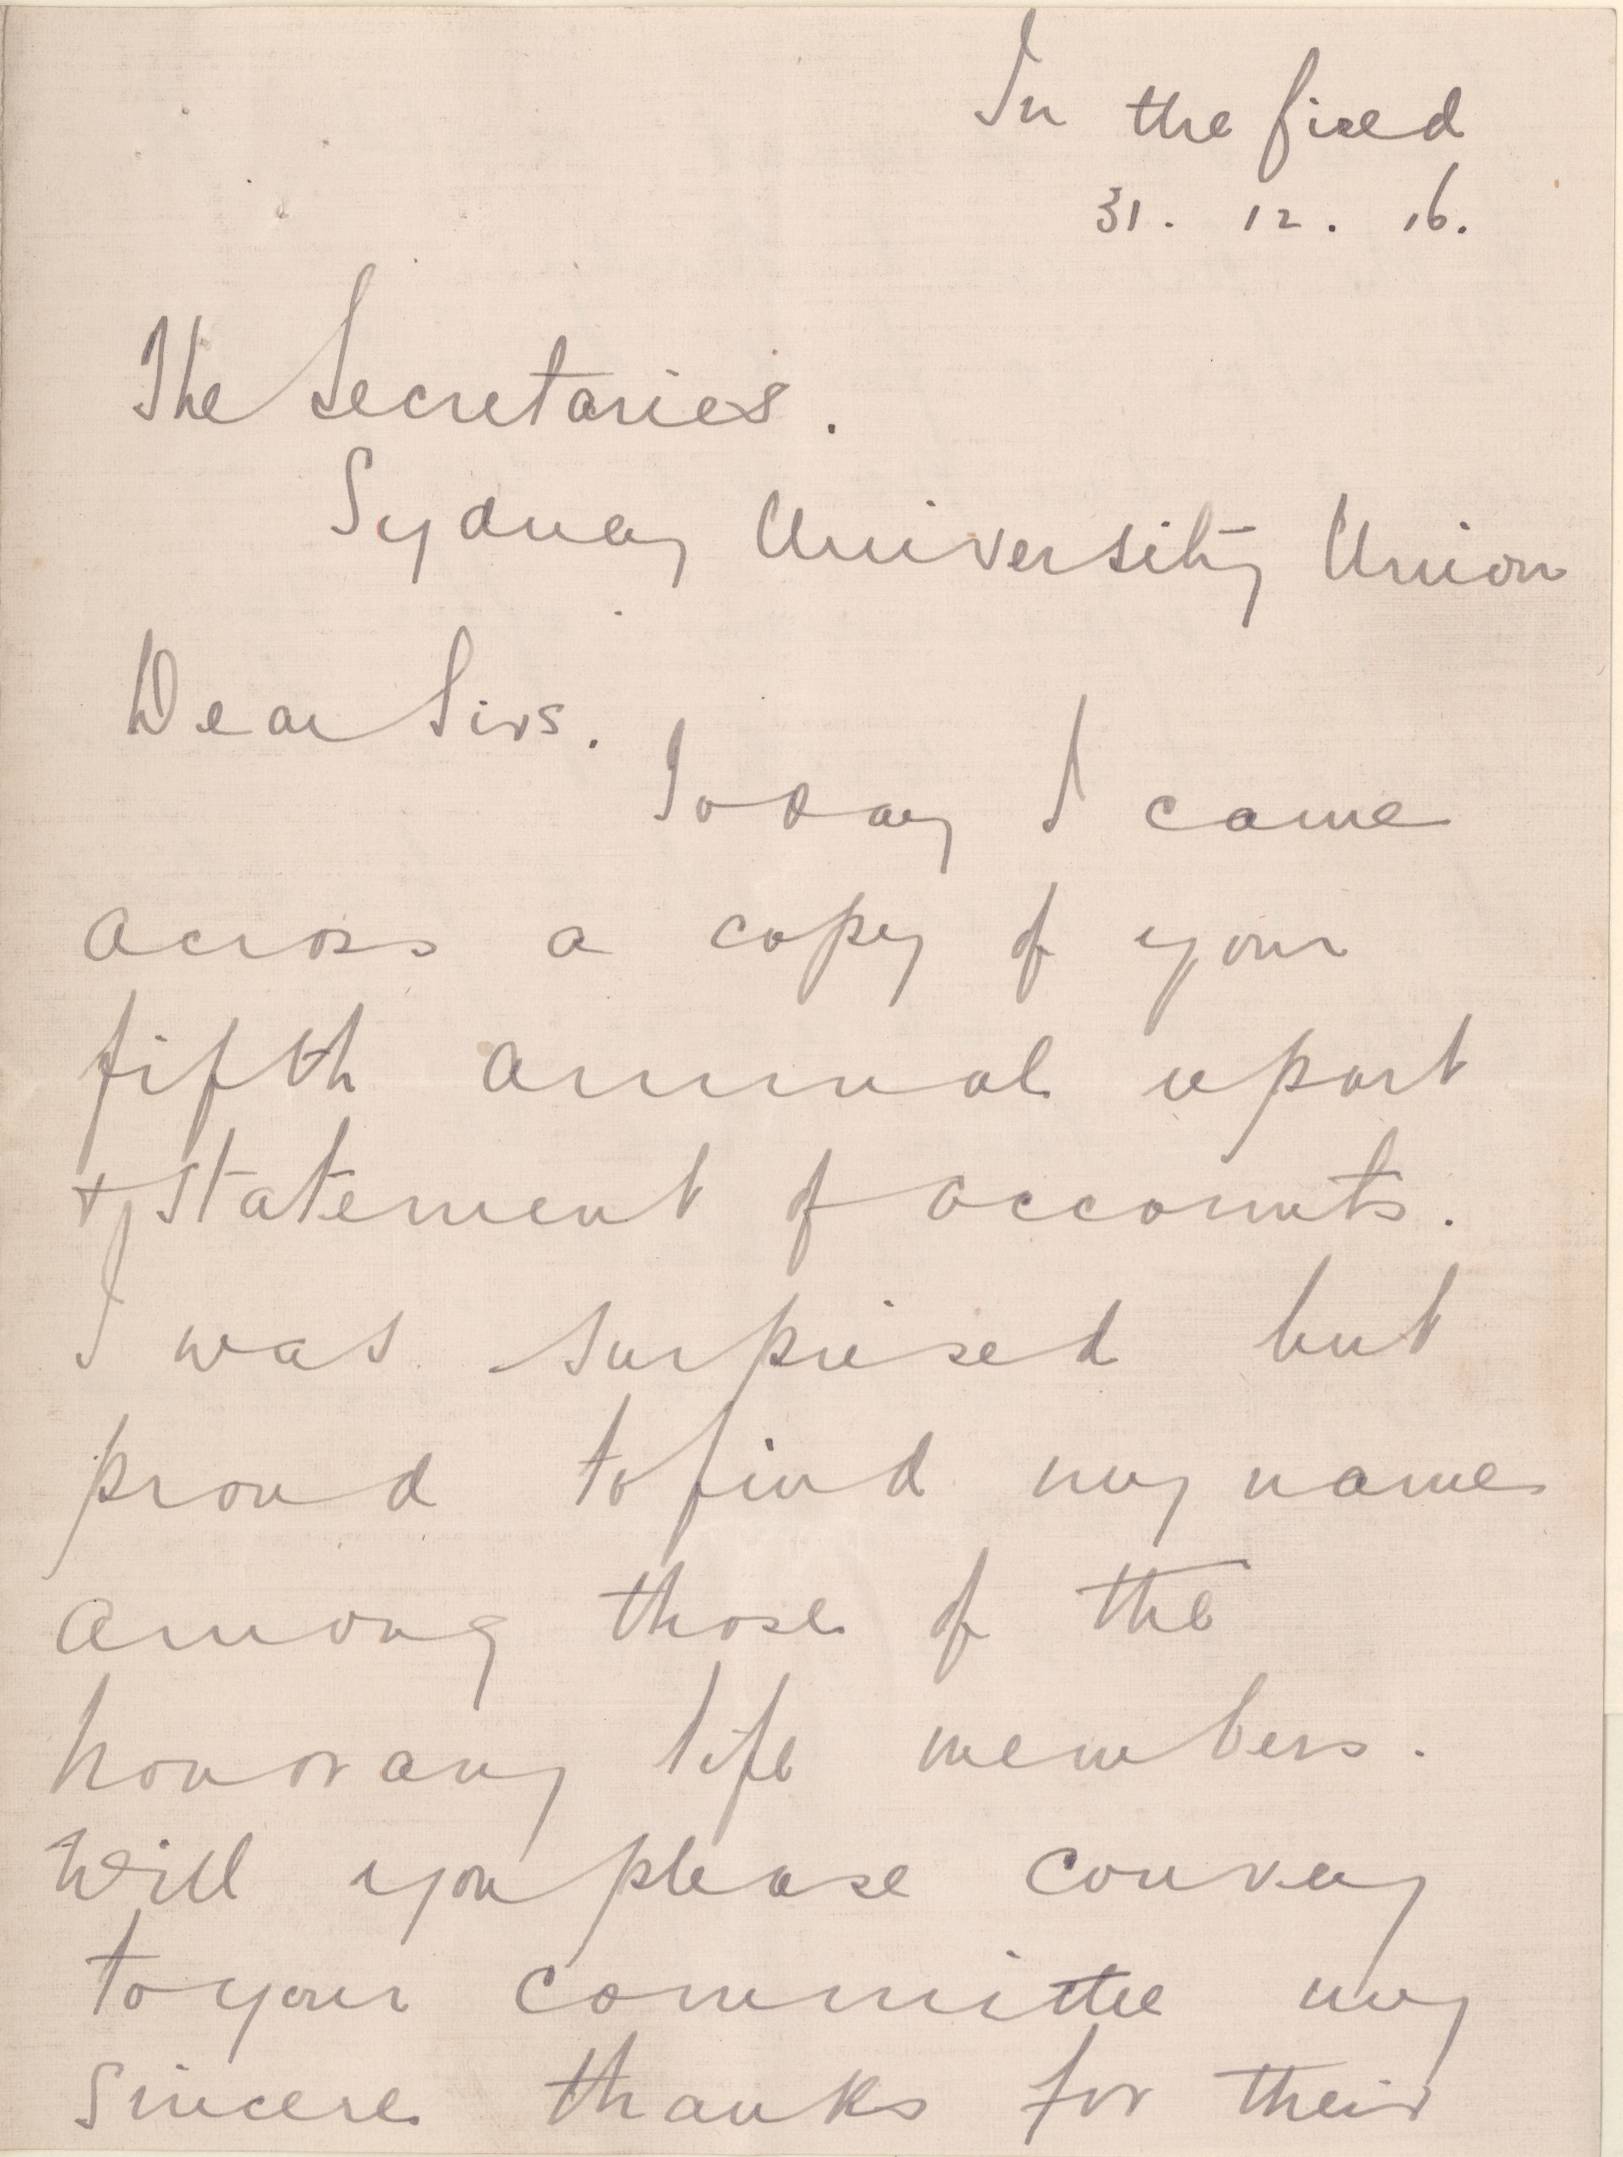 In the field
31. 12. 16.
The Secretaries.
Sydney University Union
Dear Sirs.
Today I came
across a copy of your
fifth annual report
& statement of accounts.
I was surprised but
proud to find my name
among those of the
honorary life members.
Will you please convey
to your committee my
sincere thanks for their